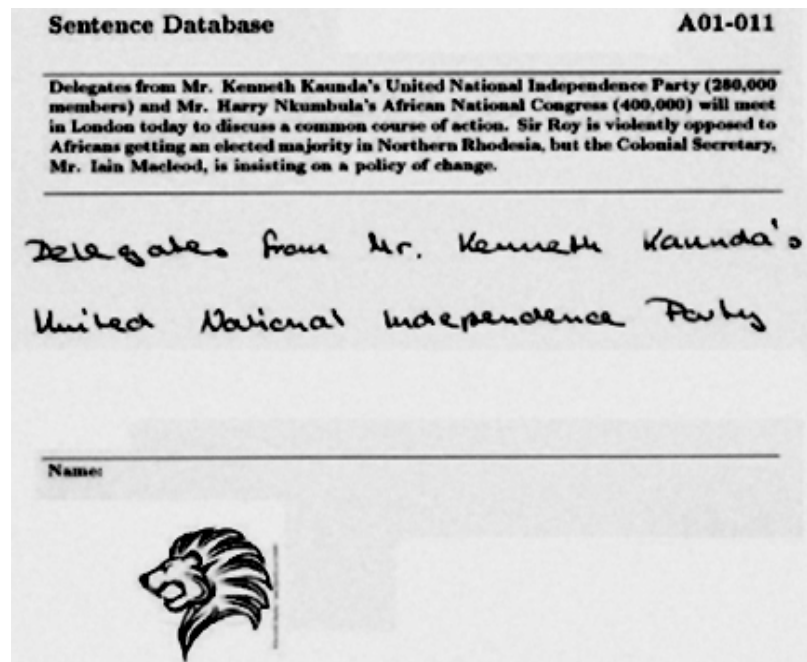 Sentence Database A01-011
Delegates from Mr. Kenneth Kaunda's United National Independence Party (280,000
members) and Mr. Harry Nkumbula's African National Congress (400,000) will meet
in London today to discuss a common course of action. Sir Roy is violently opposed to
Africans getting an elected majority in Northern Rhodesia, but the Colonial Secretary,
Mr. Iain Macleod, is insisting on a policy of change.
Delegates from Mr. Kenneth Kaunda's
United National Independence Party
Name: